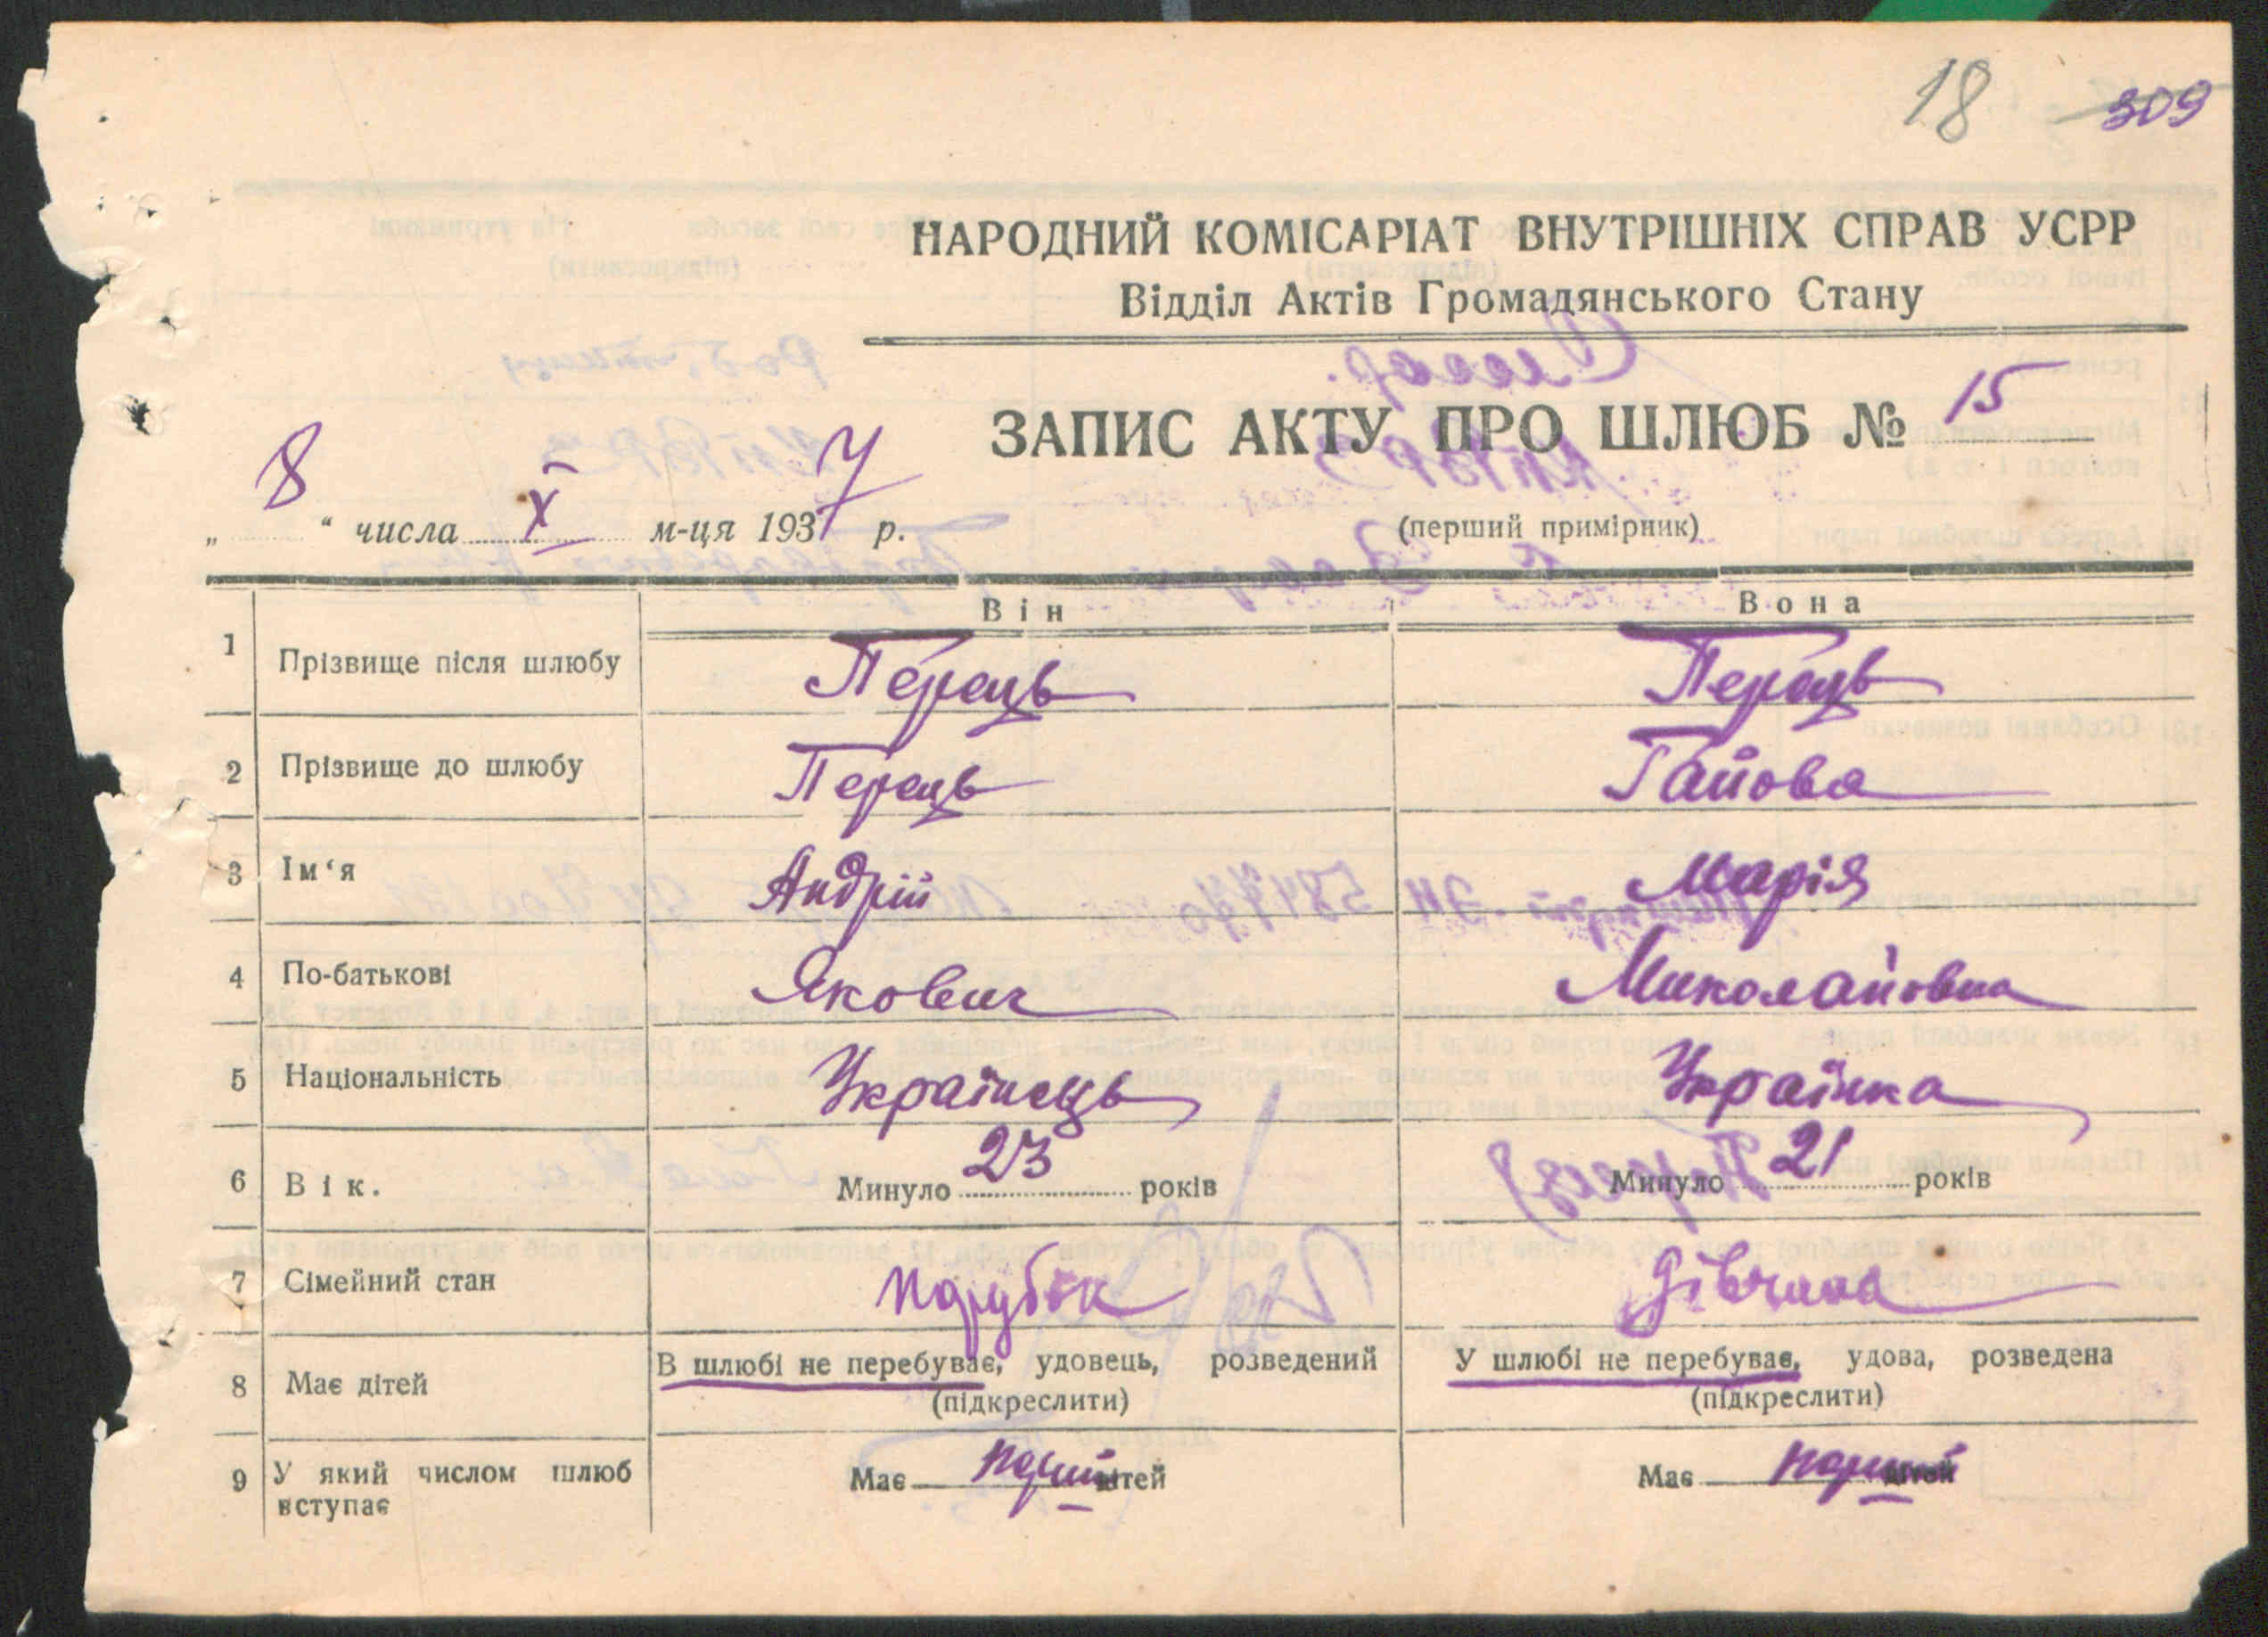 18 309
НАРОДНИЙ КОМІСАРІАТ ВНУТРІШНІХ СПРАВ УСРР
Відділ Актів Громадянського Стану
ЗАПИС АКТУ ПРО ШЛЮБ № 15
„ 8 “ числа X м-ця 1937 р.
(перший примірник)
Він Вона
1 Прізвище після шлюбу Перець Перець
2 Прізвище до шлюбу Перець Гайова
3 Ім‘я Андрій Марія
4 По-батькові Якович Миколайовна
5 Національність Українець Українка
6 Вік. Минуло 23 років Минуло 21 років
7 Сімейний стан парубок дівчина
8 Має дітей В шлюбі не перебуває, удовець, розведений У шлюбі не перебуває, удова, розведена
(підкреслити) (підкреслити)
9 У який числом шлюб Має дітей Має дітей
вступає